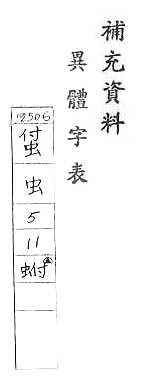 補充資料
異體字表
虫
5
11
蚹